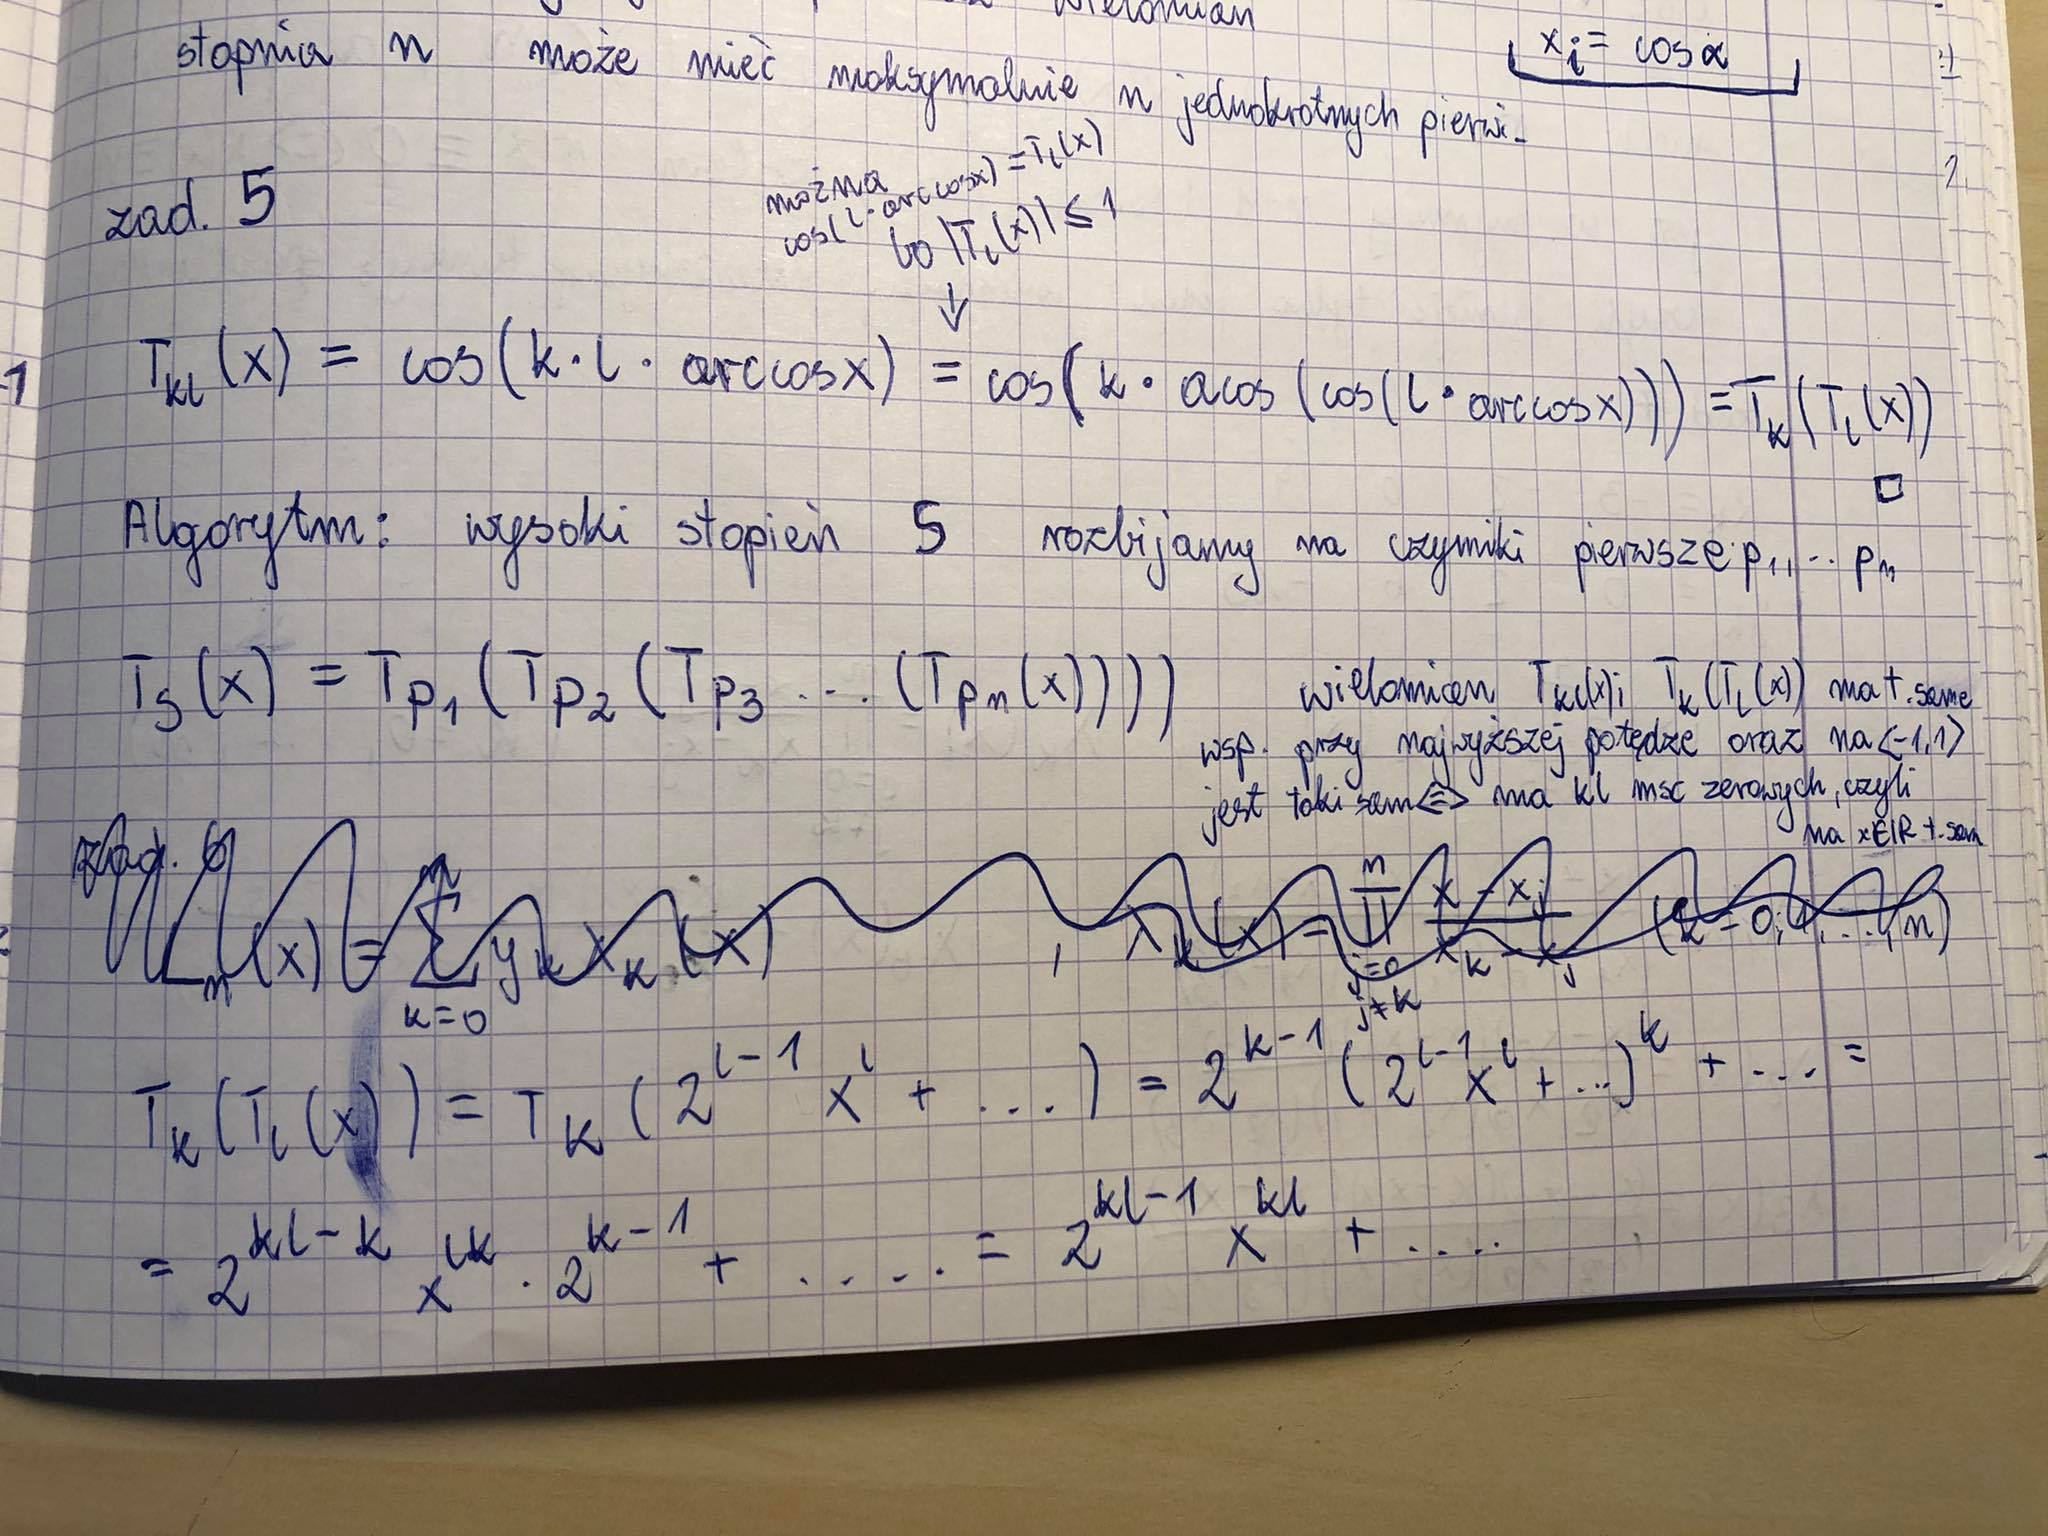 wielomian
stopnia n może mieć maksymalnie n jednokrotnych pierwi-
x_i = cos α
zad. 5
można
cos(l · arccosx) = T_l(x)
bo |T_l(x)| ≤ 1
↓
T_kl(x) = cos(k · l · arccosx) = cos(k · acos(cos(l · arccosx))) = T_k(T_l(x))
□
Algorytm: wysoki stopień S rozbijamy na czynniki pierwsze: p_1, ... p_n
T_S(x) = T_p_1(T_p_2(T_p_3 ... (T_p_n(x))))
wielomian T_kl(x) i T_k(T_l(x)) ma t. same
wsp. przy najwyższej potędze oraz na <-1,1>
jest taki sam <=> ma kl msc zerowych, czyli
na x∈R t. sam
zad. 6
L_n(x) = Σ_{k=0}^{n} y_k λ_k(x) , λ_k(x) = Π_{j=0, j≠k}^{n} (x - x_j)/(x_k - x_j) (k = 0, 1, ..., n)
T_k(T_l(x)) = T_k(2^{l-1} x^l + ...) = 2^{k-1} (2^{l-1} x^l + ...)^k + ... =
= 2^{kl-k} x^{lk} · 2^{k-1} + .... = 2^{kl-1} x^{kl} + ....